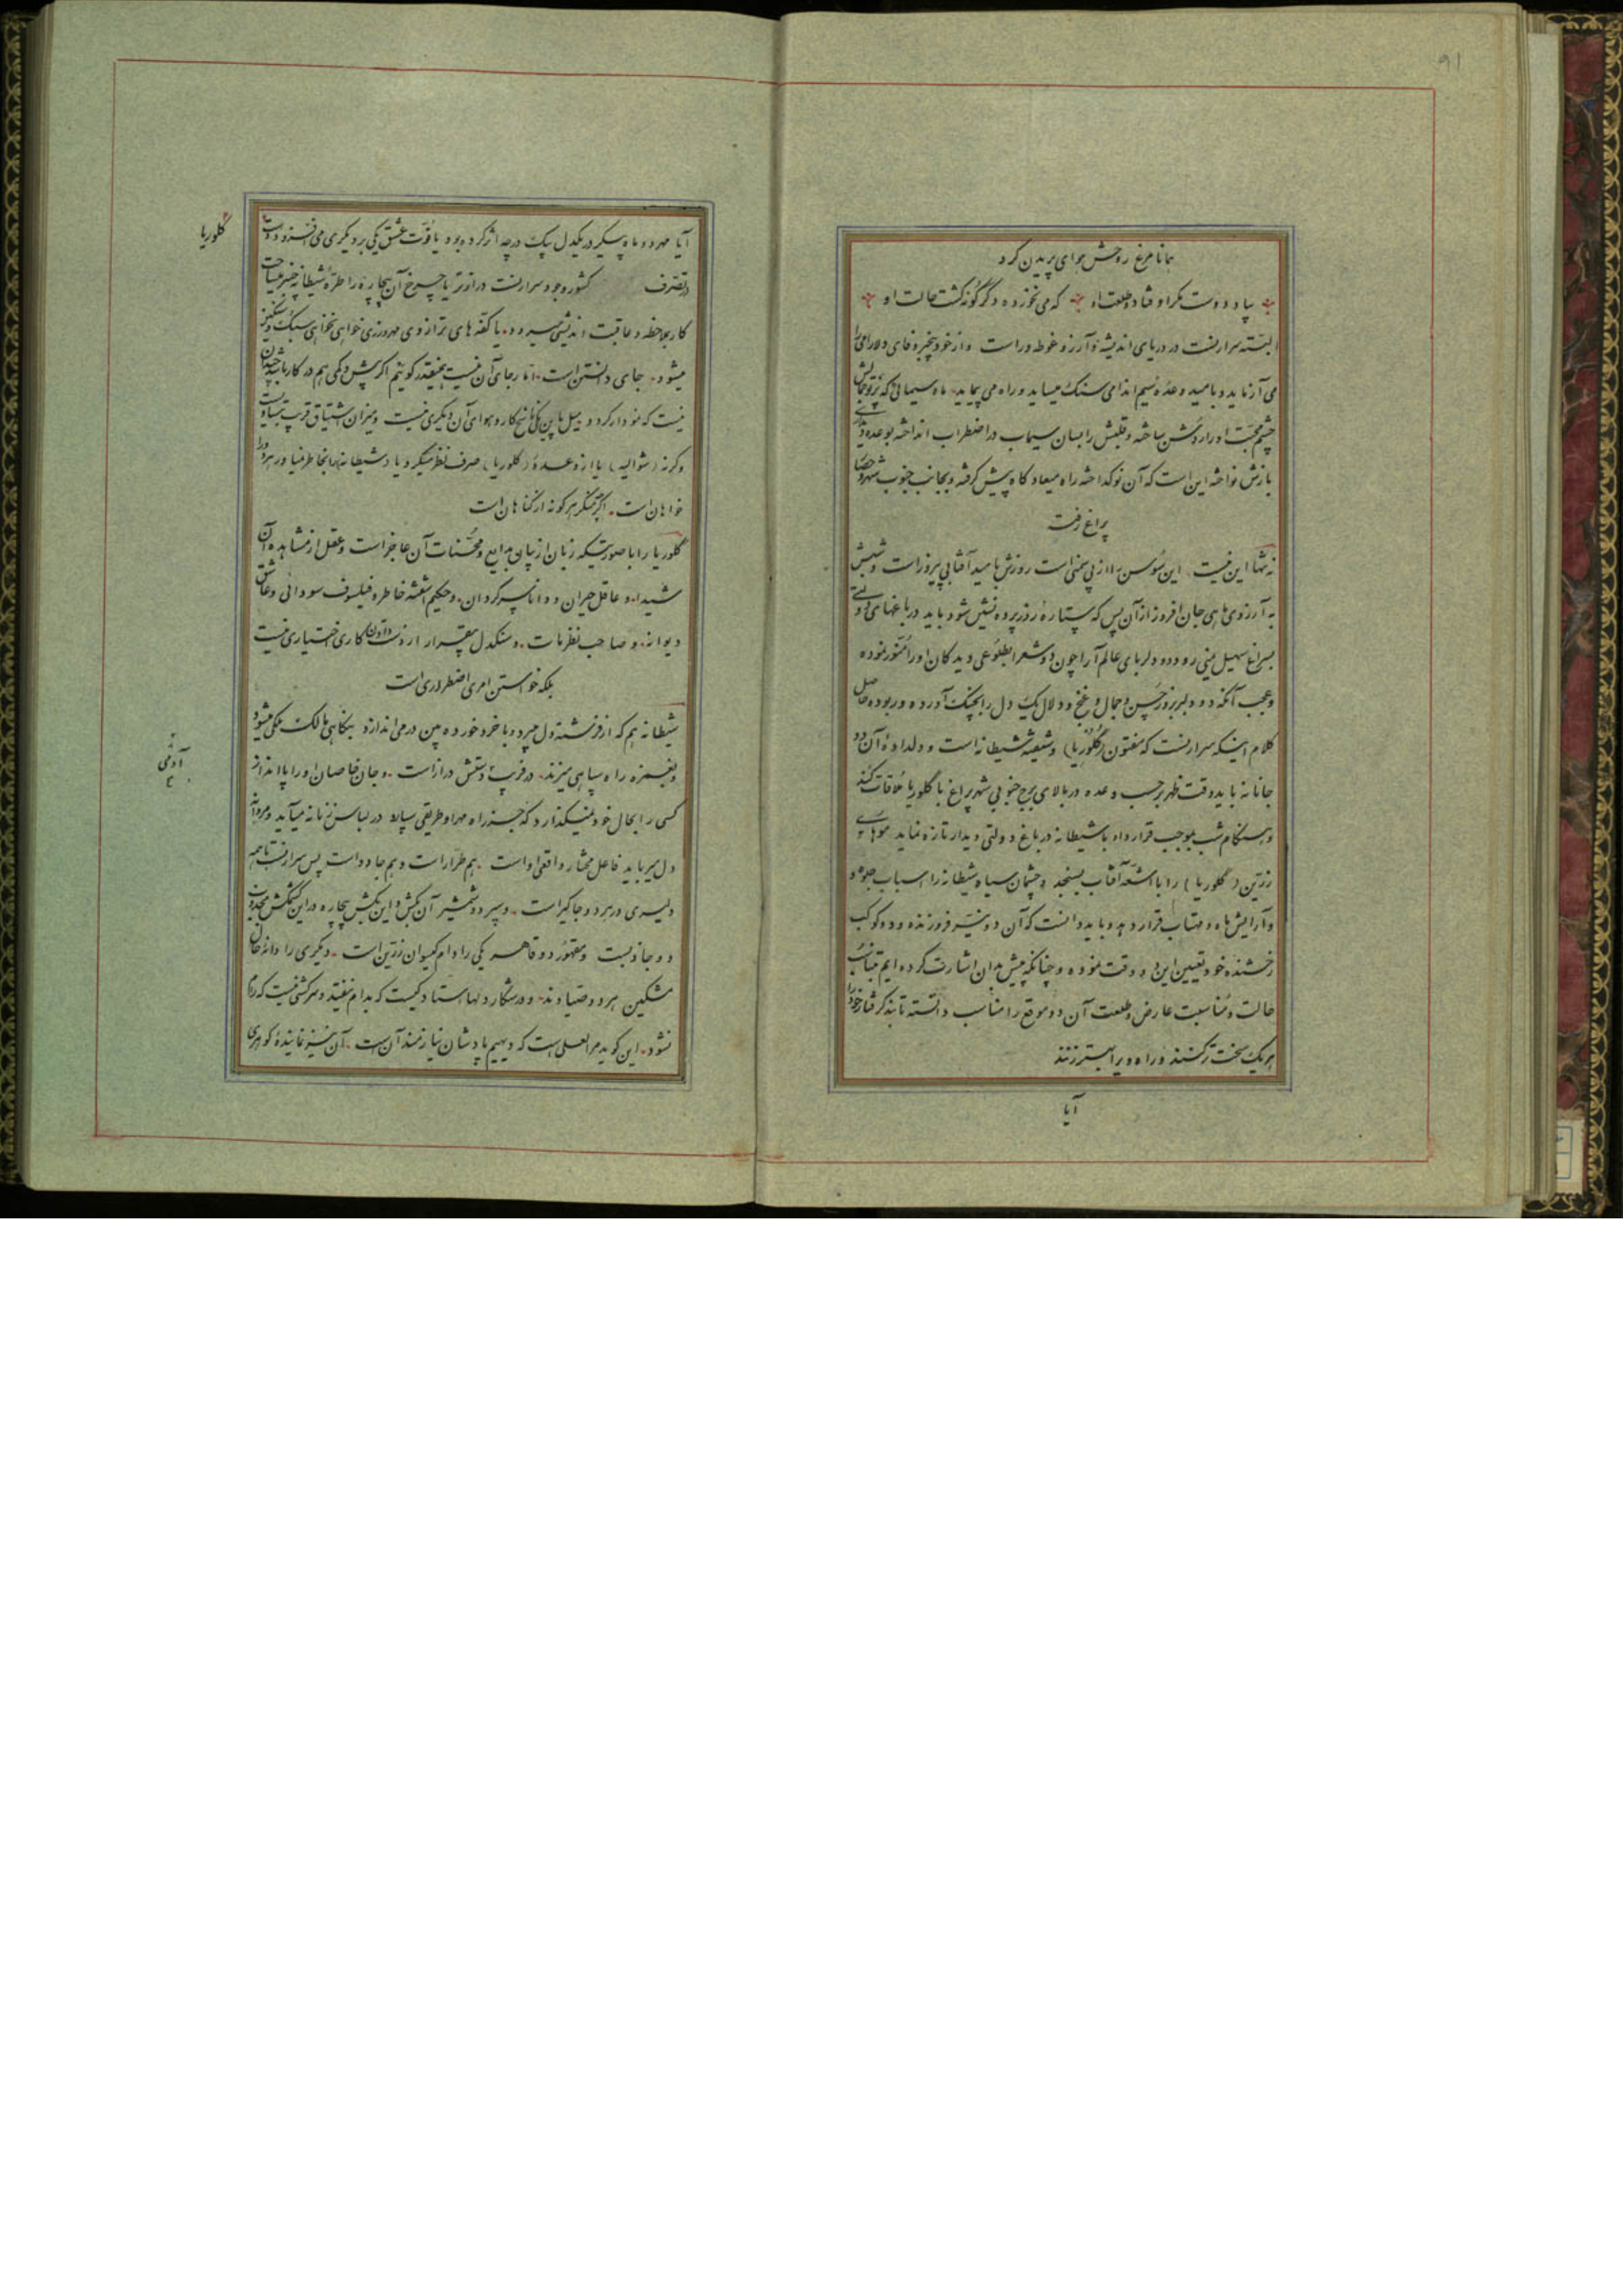 ۹۱
همانا مرغ روحش هوای پریدن کرد
بیاد دوست مگر اوفتاد و طلعت او که می نخورده دگرگونه گشت حالت او
البته سرارنست در دریای اندیشه و آرزو غوطه‌ور است و از خود بیخبر وفای دلارامی را
می آزماید و بامید وعدهٔ سیم اندامی سنگ میساید و راه می پیماید ماه سیمائی که پرتو جمالش
چشم محبت او را روشن ساخته و قلبش را بسان سیماب در اضطراب انداخته بوعده
بازش نواخته این است که آن نوگداخته راه میعاد گاه پیش گرفته و بجانب جنوب شهر
پراغ رفت
نه تنها این نیست این سوسن را از پی سمنی است روزش بامید آفتابی پیروز است و شبش
به آرزوی ماهی جان افروز از آن پس که ستارهٔ روز پرده نشین شود باید در باغهای دولتی
بسراغ سهیل یمنی رود و دو دلربای عالم آرا چون دو شعرا بطلوعی دیدگان او را منور نموده
و عجب آنکه دو دلبر بزور حسن و جمال و غنج و دلال یک دل را بچنگ آورده و ربوده حاصل
کلام اینکه سرارنست که مفتون (گلوریا) و شیفتهٔ شیطانه است و دلدادهٔ آن دو
جانانه باید وقت ظهر بر حسب وعده در بالای برج جنوبی شهر پراغ با گلوریا ملاقات کند
و هنگام شب بموجب قرارداد با شیطانه در باغ دولتی دیدار تازه نماید موهای
زرین (گلوریا) را با اشعهٔ آفتاب بسنجد و چشمان سیاه شیطانه را اسباب جلوه
و آرایش ماه و مهتاب قرار دهد و باید دانست که آن دو نیر فروزنده و دو کوکب
رخشنده خود تعیین این دو وقت نموده و چنانکه پیش بدان اشارت کرده ایم بتناسب
حالت و مناسبت عارض و طلعت آن دو موقع را مناسب دانسته تا بند گرفتار خود را
هر یک سخت تر کنند و راه ویرا بهتر زنند
آیا
آیا مهر دو ماه پیکر در یکدل بیک درجه اثر کرده بود یا قوت عشق یکی بر دیگری می افزود و دست
تصرف کشور وجود سرارنست درازتر یا چرخ آن بیچاره را طرهٔ شیطانه
کار بملاحظه و عاقبت اندیشی میرود یا کفه های ترازوی مهرورزی خواهی نخواهی سبک و سنگین
میشود جای دانستن است اما رجای آن نیست همینقدر گوئیم اگر بیش و کمی هم در کار باشد چندان
نیست که نمودار گردد و میل باین یکی ناسخ کار و هوای آن دیگری نیست و میزان اشتیاق قریب بتساوی است
وگرنه (شوالیه) یا از وعدهٔ (گلوریا) صرف نظر میکرد یا شیطانه را بخاطر نمیاورد هر دو را
خواهان است اگر چه منکر هر گونه از گناهان است
گلوریا را با صورتیکه زبان از بیان بدایع و محسنات آن عاجز است و عقل از مشاهدهٔ آن
شیدا و عاقل حیران و دانا سرگردان و حکیم آشفته خاطر و فیلسوف سودائی و عاشق
دیوانه و صاحب نظر مات و سنگدل بیقرار از دست دادن کاری اختیاری نیست
بلکه خواستن امری اضطراری است
شیطانه هم که از فرشته دل میبرد و با خرد خورده بین در می اندازد بنگاهی مالک ملکی میشود
و بغمزه راه سپاهی میزند در فریب دستش دراز است و جان خاصان او را پا انداز
کسی را بحال خود نمیگذارد که جز راه مهر او طریقی سپارد در لباس زنانه میآید و مردانه
دل میرباید فاعل مختار واقعی او است هم طرار است و هم جادو است پس سرارنست با همه
دلیری در برد و جا گیر است و سپر دو شمشیر آن بکش و این بکش بیچاره در این کشمکش مجذوب
دو جاذبست و مقهور دو قاهر یکی را دام گیسوان زرین است دیگری را دانه خال
مشکین هر دو صیادند و در شکار دلها استاد کیست که بدام نیفتد و سرکشی نیست که رام
نشود این گوید مرا لعلی است که دیهیم پادشاهان نیازمند آن است آن نیز نمایندهٔ گوهری
گلوریا
آدمی